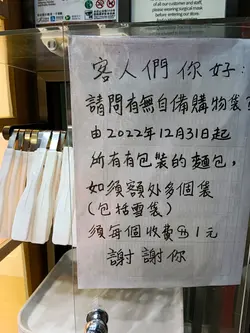 All of our staff
please wearing surgical mask
before entering our store.
客人們你好：
請問有無自備購物袋？
由2022年12月31日起
所有有包裝的麵包，
如須額外多個袋
（包括雪袋）
須每個收費$1元
謝謝你